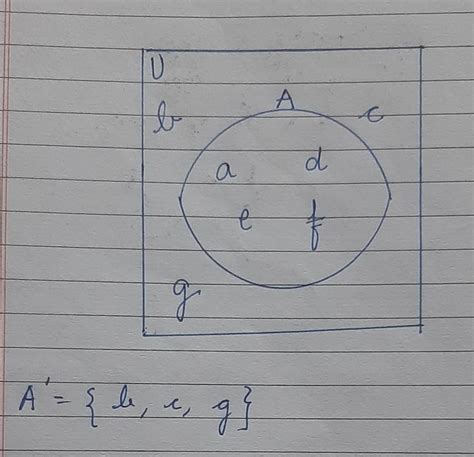 U
A
b c
a d
e f
g
A' = { b, c, g }